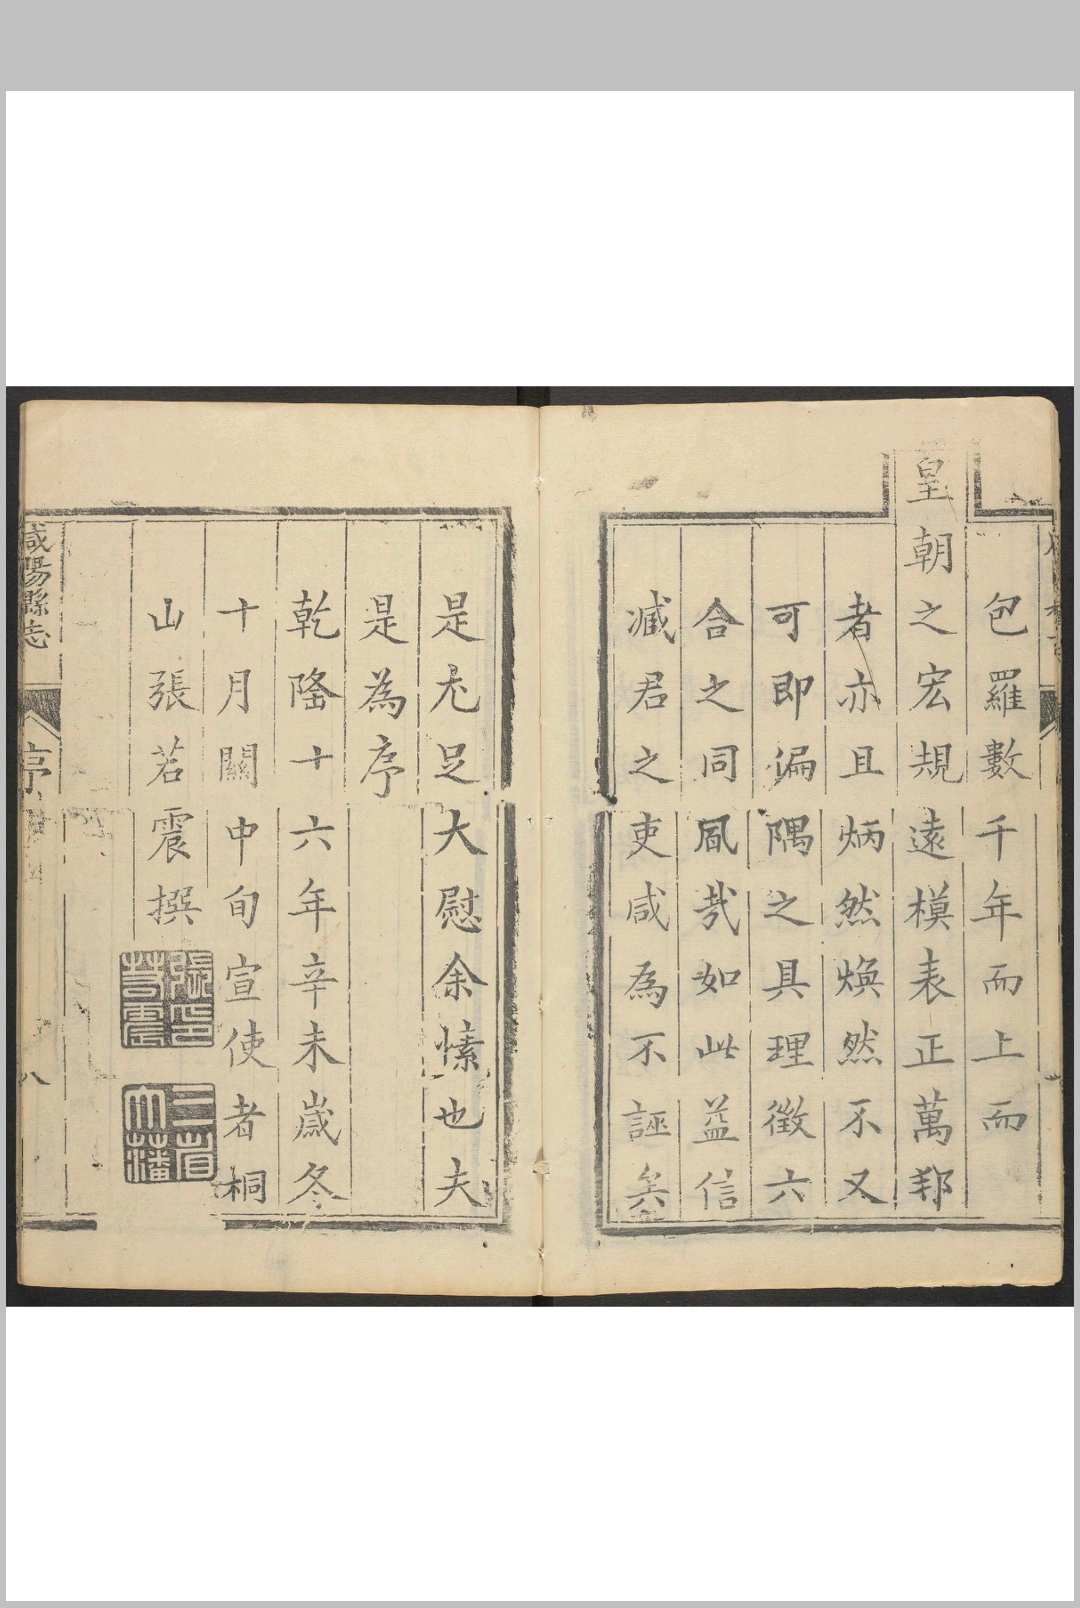 包羅數千年而上而
皇朝之宏規遠模表正萬邦
者亦且炳然煥然不又
可即偏隅之具理徵六
合之同風哉如此益信
臧君之吏咸為不誣矣
是尤足大慰余愫也夫
是為序
乾隆十六年辛未歲冬
十月關中旬宣使者桐
山張若震撰
張若震印
三省大藩
咸陽縣志
序
八